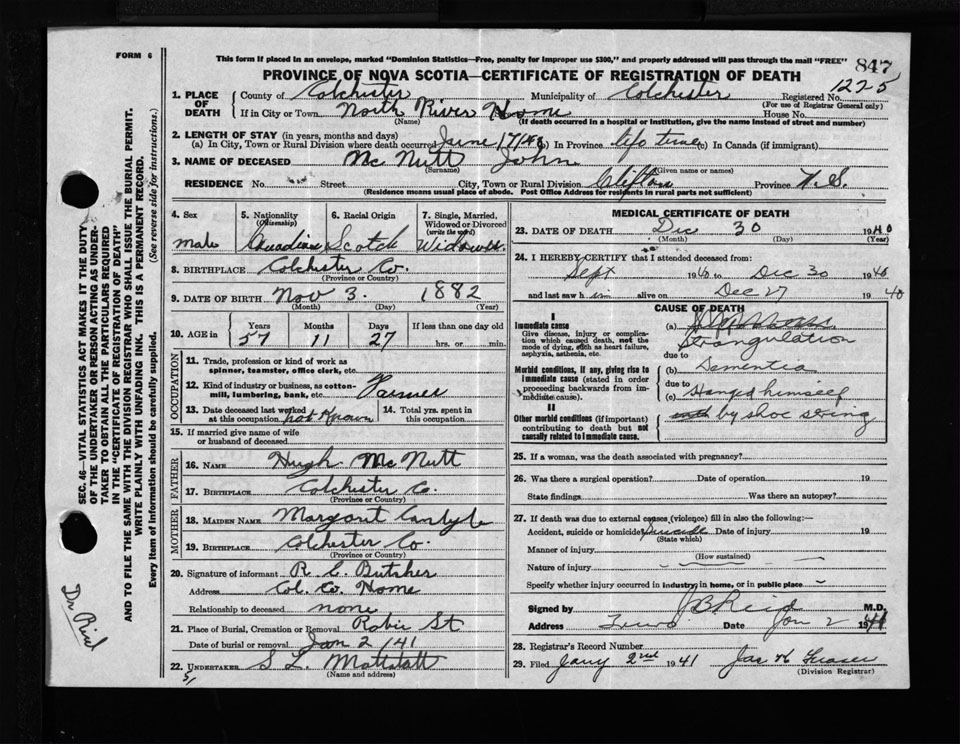 FORM 6
This form if placed in an envelope, marked "Dominion Statistics—Free, penalty for improper use $300," and properly addressed will pass through the mail "FREE"
847
PROVINCE OF NOVA SCOTIA—CERTIFICATE OF REGISTRATION OF DEATH
1225
1. PLACE OF DEATH
County of Colchester Municipality of Colchester Registered No.
(For use of Registrar General only)
If in City or Town North River Home House No.
(Name) (If death occurred in a hospital or institution, give the name instead of street and number)
2. LENGTH OF STAY (in years, months and days)
(a) In City, Town or Rural Division where death occurred June 17/40 (b) In Province life time (c) In Canada (if immigrant)
3. NAME OF DECEASED Mc Nutt John
(Surname) (Given name or names)
RESIDENCE No. Street City, Town or Rural Division Clifton Province N.S.
(Residence means usual place of abode. Post Office Address for residents in rural parts not sufficient)
4. Sex 5. Nationality (Citizenship) 6. Racial Origin 7. Single, Married, Widowed or Divorced (write the word)
male Canadian Scotch Widower
8. BIRTHPLACE Colchester Co.
(Province or Country)
9. DATE OF BIRTH Nov 3. 1882
(Month) (Day) (Year)
10. AGE in Years Months Days If less than one day old
57 11 27 hrs. or min.
OCCUPATION
11. Trade, profession or kind of work as spinner, teamster, office clerk, etc.
12. Kind of industry or business, as cotton-mill, lumbering, bank, etc. Farmer
13. Date deceased last worked at this occupation not known 14. Total yrs. spent in this occupation
15. If married give name of wife or husband of deceased
FATHER
16. NAME Hugh Mc Nutt
17. BIRTHPLACE Colchester Co.
(Province or Country)
MOTHER
18. MAIDEN NAME Margaret Carlyle
19. BIRTHPLACE Colchester Co.
(Province or Country)
20. Signature of informant R. C. Butcher
Address Col. Co. Home
Relationship to deceased none
21. Place of Burial, Cremation or Removal Robie St
Date of burial or removal Jan 2/41
22. UNDERTAKER S L. Mattatall
(Name and address)
51
MEDICAL CERTIFICATE OF DEATH
23. DATE OF DEATH Dec 30 1940
(Month) (Day) (Year)
24. I HEREBY CERTIFY that I attended deceased from:
Sept 1940 to Dec 30 1940
and last saw h im alive on Dec 27 1940
CAUSE OF DEATH
I
Immediate cause
Give disease, injury or complication which caused death, not the mode of dying, such as heart failure, asphyxia, asthenia, etc.
(a)
Strangulation
due to
Morbid conditions, if any, giving rise to immediate cause (stated in order proceeding backwards from immediate cause).
(b) Dementia
due to
(c) Hanged himself
by shoe string
II
Other morbid conditions (if important) contributing to death but not causally related to immediate cause.
25. If a woman, was the death associated with pregnancy?
26. Was there a surgical operation? Date of operation 19
State findings Was there an autopsy?
27. If death was due to external causes (violence) fill in also the following:—
Accident, suicide or homicide? Suicide Date of injury 19
(State which)
Manner of injury
(How sustained)
Nature of injury
Specify whether injury occurred in industry, in home, or in public place
Signed by J B Reid M.D.
Address Truro Date Jan 2 1941
28. Registrar's Record Number
29. Filed Jany 2nd 1941 Jas K Fraser
(Division Registrar)
SEC. 46—VITAL STATISTICS ACT MAKES IT THE DUTY
OF THE UNDERTAKER OR PERSON ACTING AS UNDER-
TAKER TO OBTAIN ALL THE PARTICULARS REQUIRED
IN THE "CERTIFICATE OF REGISTRATION OF DEATH"
AND TO FILE THE SAME WITH THE DIVISION REGISTRAR WHO SHALL ISSUE THE BURIAL PERMIT.
WRITE PLAINLY WITH UNFADING INK. THIS IS A PERMANENT RECORD.
Every item of information should be carefully supplied. (See reverse side for instructions.)
Dr Reid